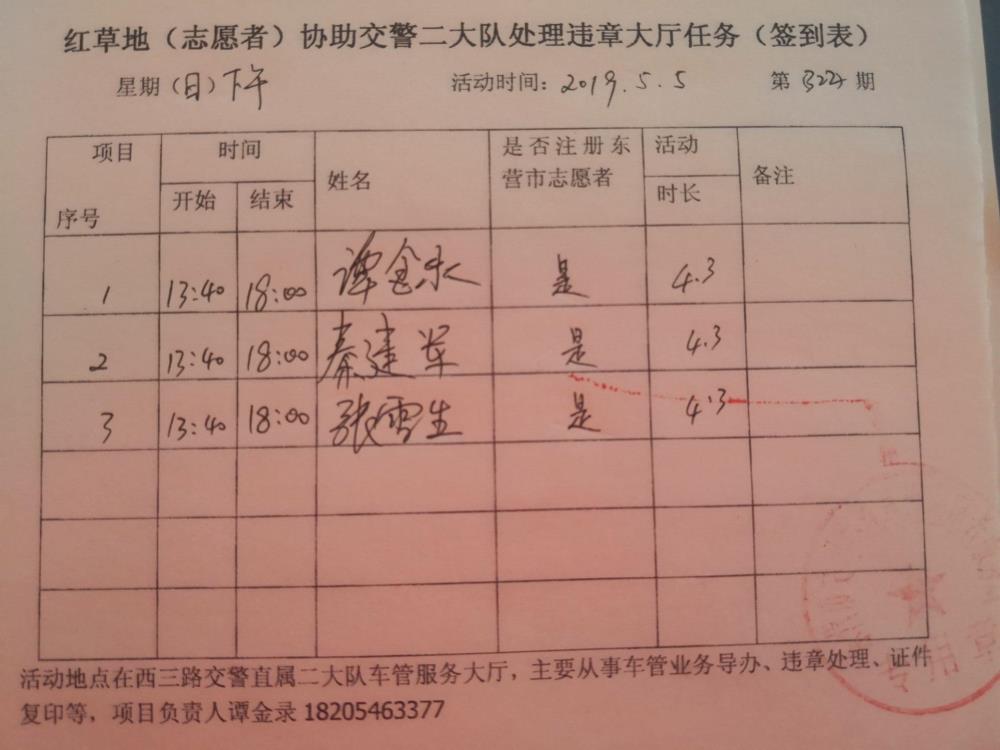 红草地（志愿者）协助交警二大队处理违章大厅任务（签到表）
星期（日）下午 活动时间：2019.5.5 第322期
项目 时间 姓名 是否注册东 活动 备注
营市志愿者
序号 开始 结束 时长
1 13:40 18:00 谭金永 是 4.3
2 13:40 18:00 秦建军 是 4.3
3 13:40 18:00 张雪生 是 4.3
活动地点在西三路交警直属二大队车管服务大厅，主要从事车管业务导办、违章处理、证件
复印等，项目负责人谭金录 18205463377
专用章